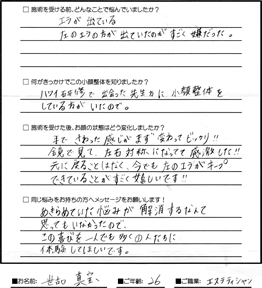 □ 施術を受ける前、どんなことで悩んでいましたか？
エラが出ている
左のエラの方が出ていたのがすごく嫌だった。
□ 何がきっかけでこの小顔整体を知りましたか？
ハワイ で出会った先生方に小顔整体を
している方がいたので。
□ 施術を受けた後、お顔の状態はどう変化しましたか？
まず さわった感じがまず変わってビックリ!!
鏡で見て、左右対称になってて感激した!!
元に戻ることはなく、今でも左のエラがキープ
できていることがすごく嬉しいです!!
□ 同じ悩みをお持ちの方へメッセージをお願いします！
あきらめていた悩みが解消するなんて
思ってもいなかったので、
この喜びを一人でも多くの人たちに
体験してほしいです。
■お名前: 真宝 ■ご年齢: 26 ■ご職業: エステティシャン